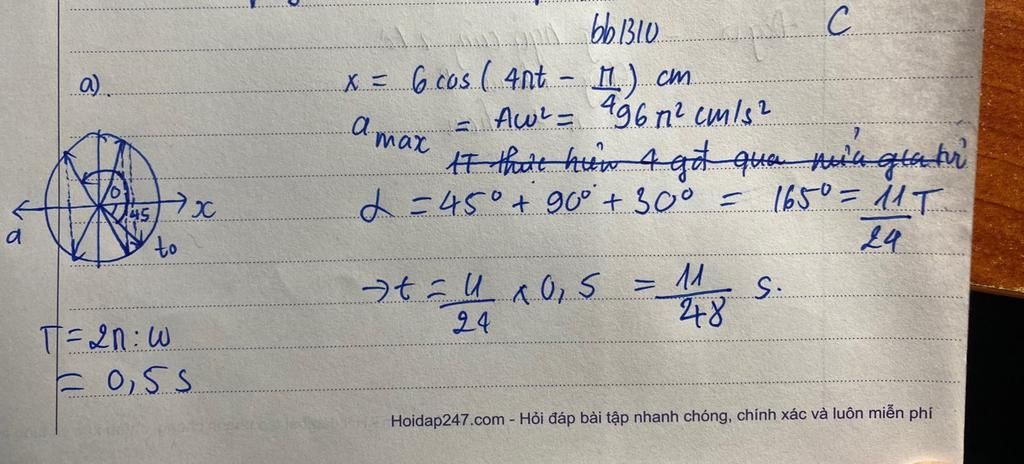 bb1310
C
a).
x = 6 cos ( 4πt - π/4 ) cm
a max = Aω² = 96 π² cm/s²
1T thực hiện 4 gđ qua nửa gia trị
α = 45° + 90° + 30° = 165° = 11/24 T
a
x
0
45
t0
→ t = 11/24 x 0,5 = 11/48 s.
T = 2π : ω
= 0,5 s
Hoidap247.com - Hỏi đáp bài tập nhanh chóng, chính xác và luôn miễn phí